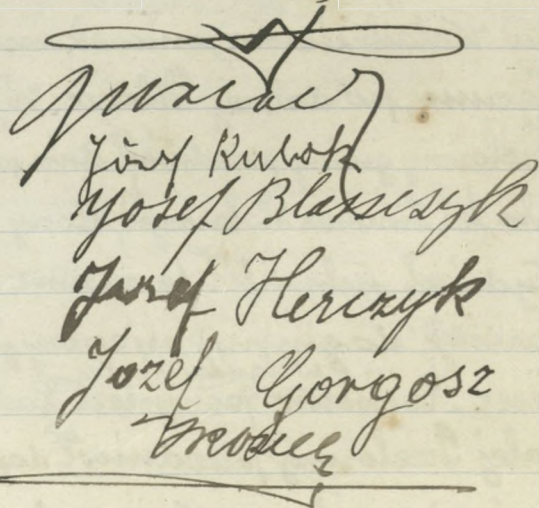 Józef Kubok
Josef Blaszczyk
Józef Herczyk
Jozef Gorgosz